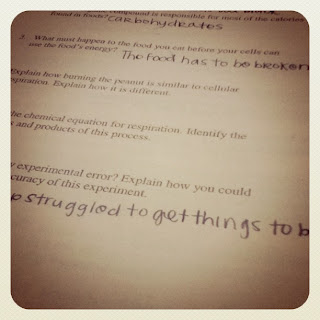 compound is responsible for most of the calories
found in foods? Carbohydrates
3. What must happen to the food you eat before your cells can
use the food's energy? The food has to be broken
Explain how burning the peanut is similar to cellular
respiration. Explain how it is different.
the chemical equation for respiration. Identify the
and products of this process.
experimental error? Explain how you could
accuracy of this experiment.
struggled to get things to b